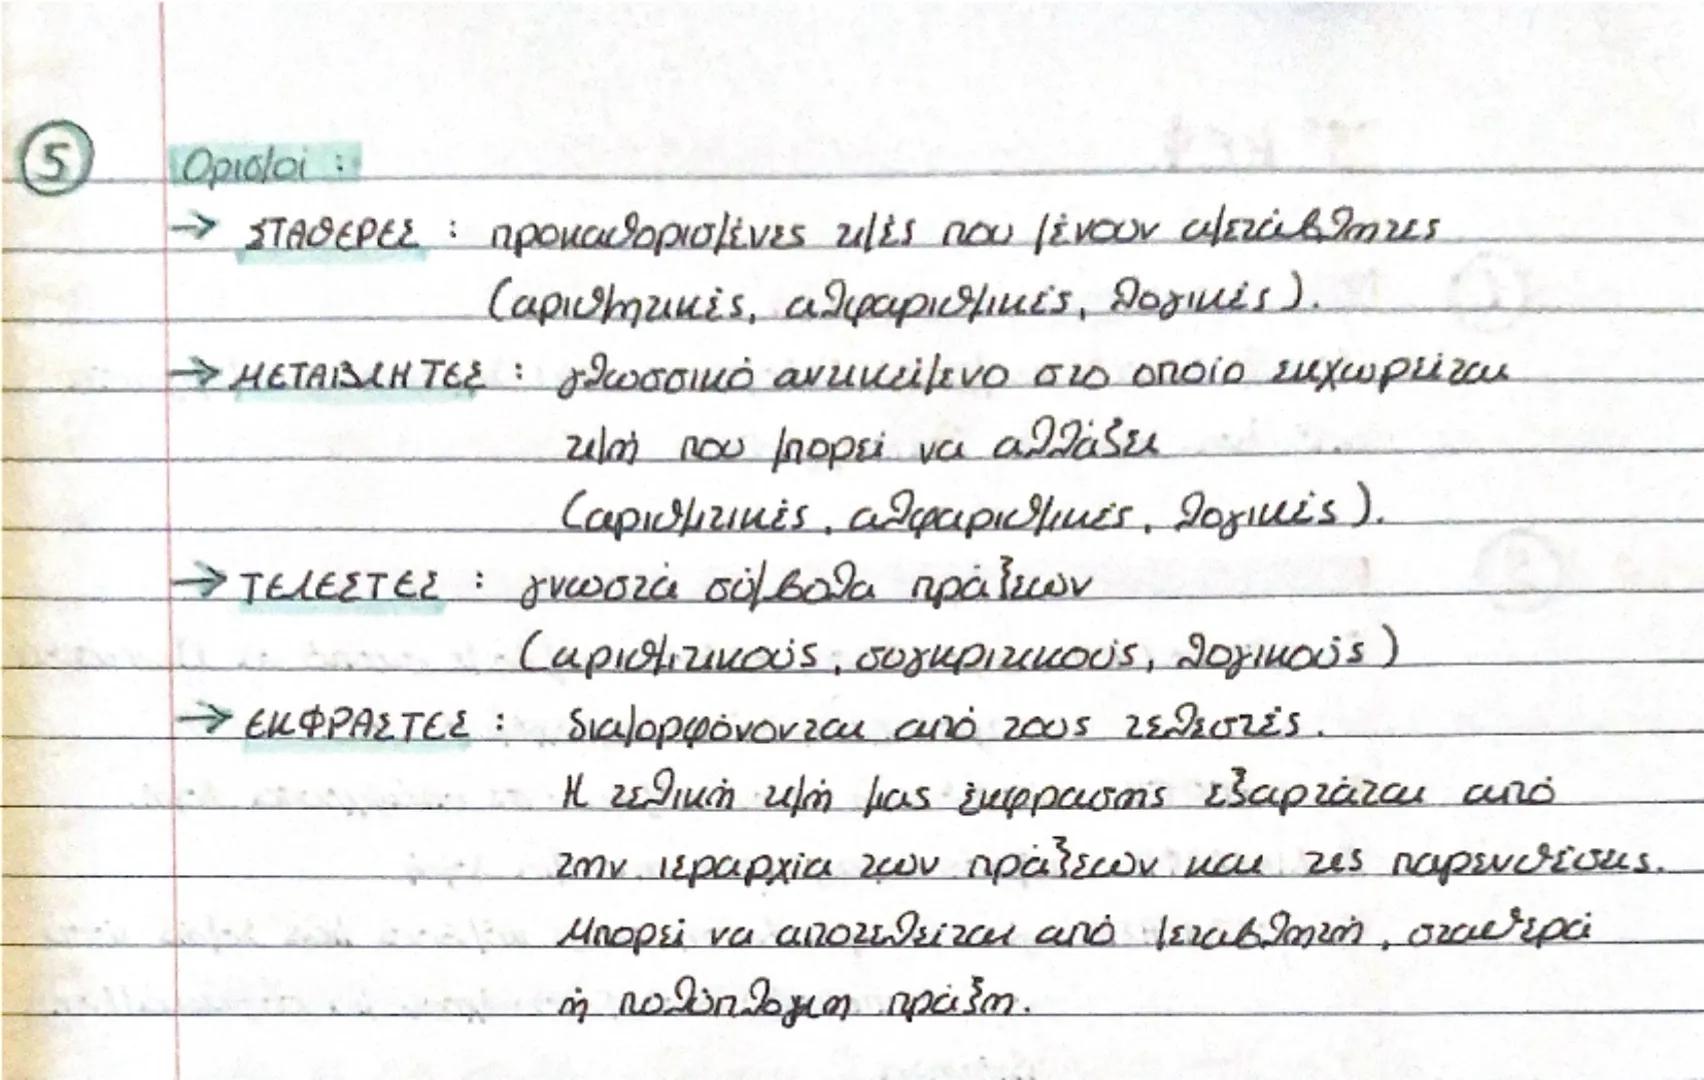 5 Ορισμοί :
→ ΣΤΑΘΕΡΕΣ : προκαθορισμένες τιμές που μένουν αμετάβλητες
(αριθμητικές, αλφαριθμικές, λογικές).
→ ΜΕΤΑΒΛΗΤΕΣ : γλωσσικό αντικείμενο στο οποίο εκχωρείται
τιμή που μπορεί να αλλάξει
(αριθμιτικές, αλφαριθμικές, λογικές).
→ ΤΕΛΕΣΤΕΣ : γνωστά σύμβολα πράξεων
(αριθμιτικούς, συγκριτικούς, λογικούς)
→ ΕΚΦΡΑΣΤΕΣ : διαμορφόνονται από τους τελεστές.
Η τελική τιμή μιας έκφρασης εξαρτάται από
την ιεραρχία των πράξεων και τις παρενθέσεις.
Μπορεί να αποτελείται από μεταβλητή, σταθερά
ή πολύπλοκη πράξη.